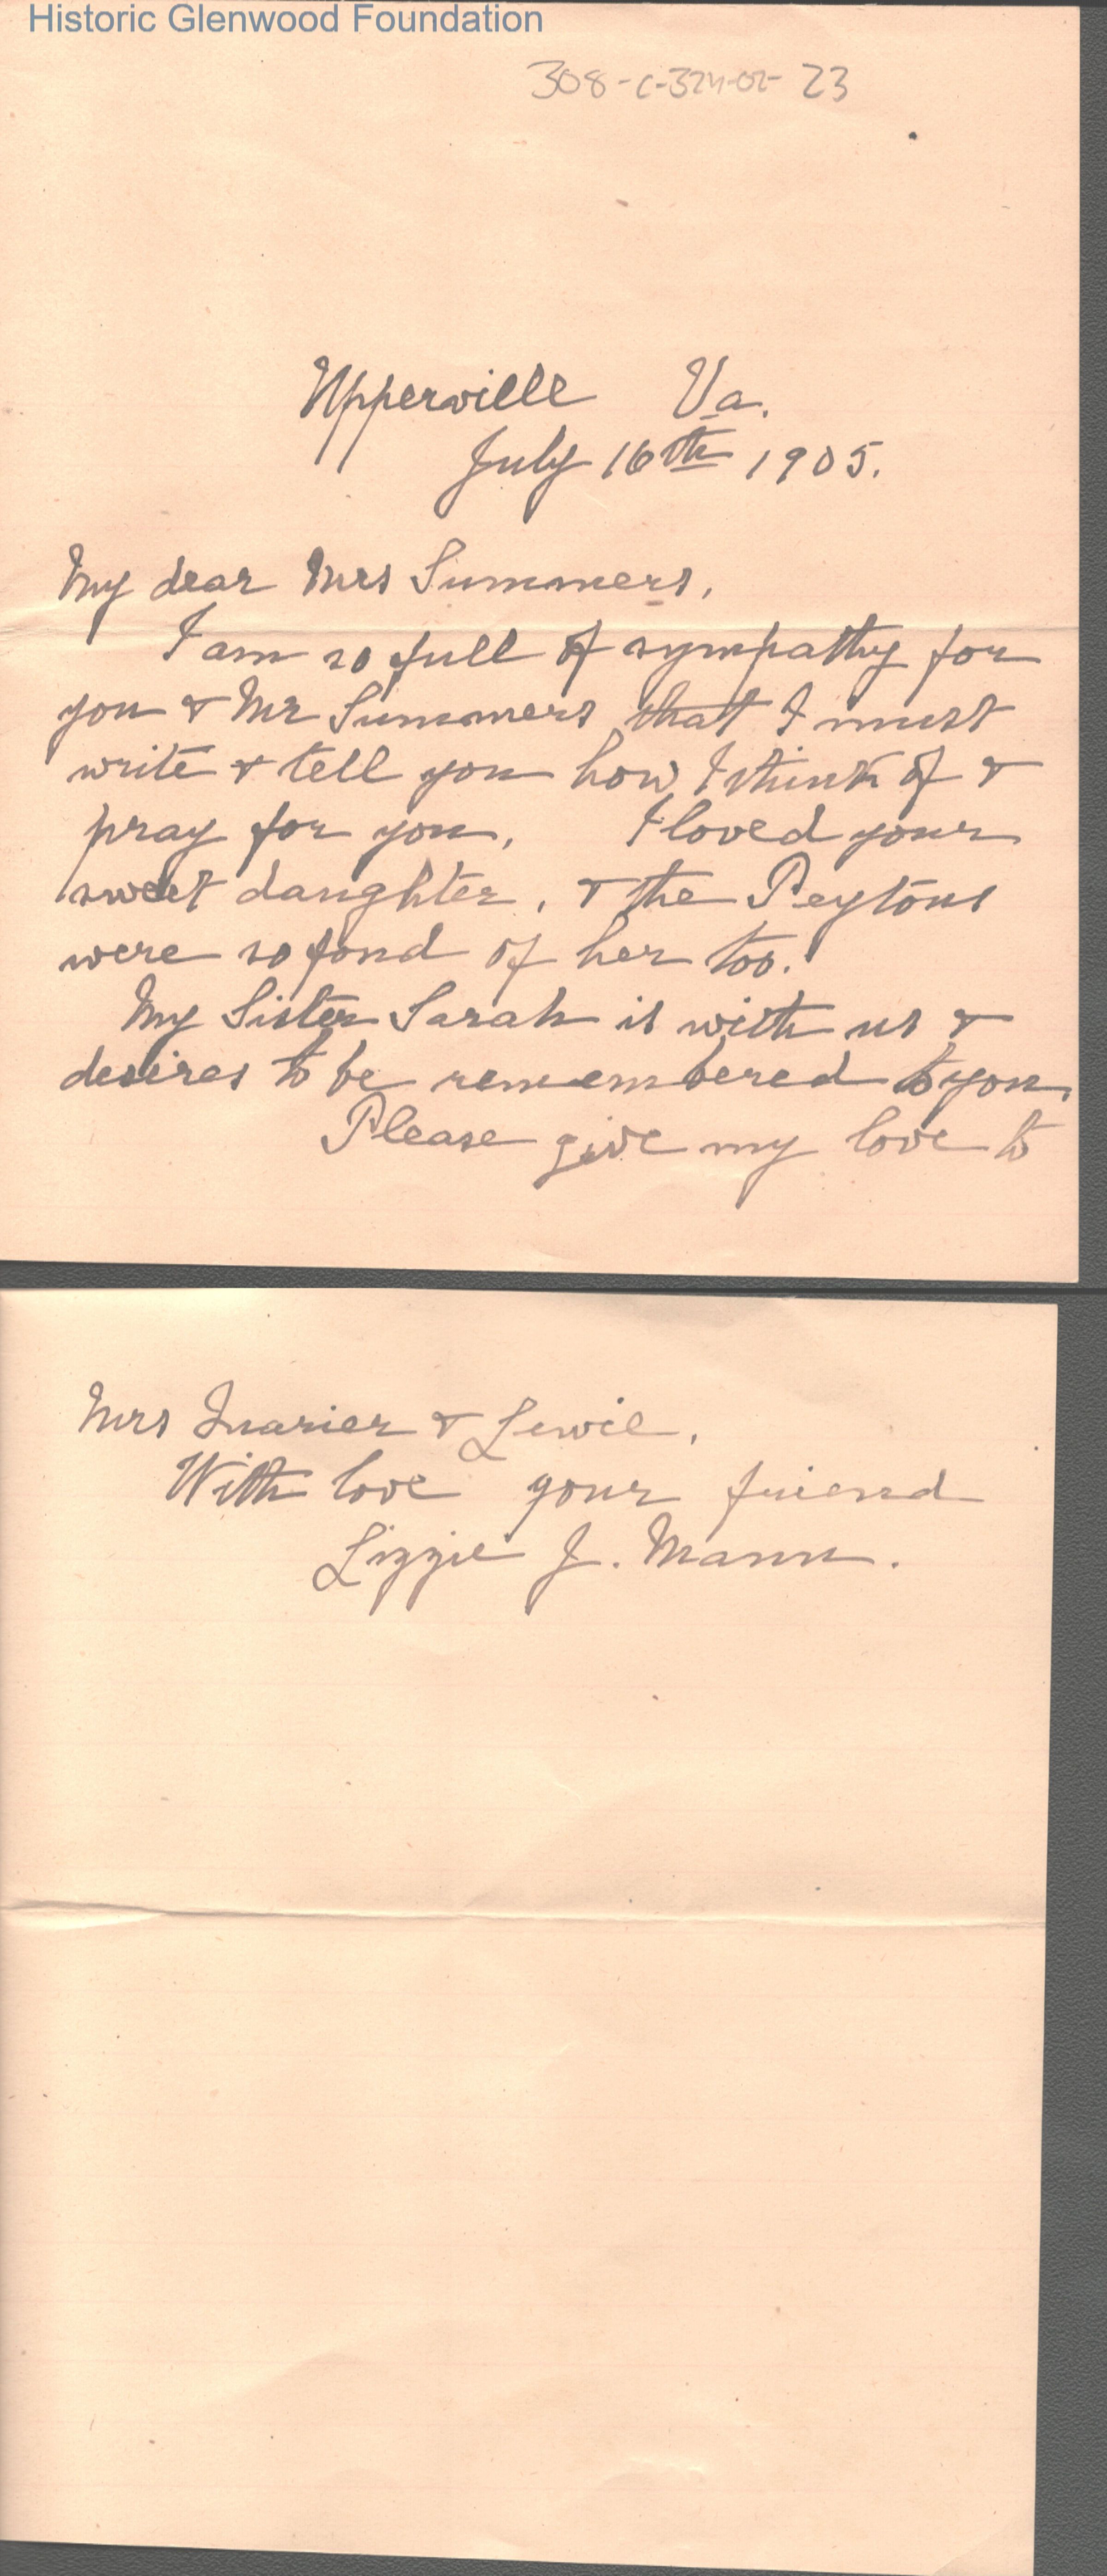 Historic Glenwood Foundation
308-C-324-02-23
Upperville Va.
July 16th 1905.
My dear Mrs Summers,
I am so full of sympathy for
you & Mr Summers that I must
write & tell you how I think of &
pray for you. I loved your
sweet daughter, & the Peytons
were so fond of her too.
My Sister Sarah is with us &
desires to be remembered to you.
Please give my love to
Mrs Quarier & Lewie.
With love your friend
Lizzie J. Mann.